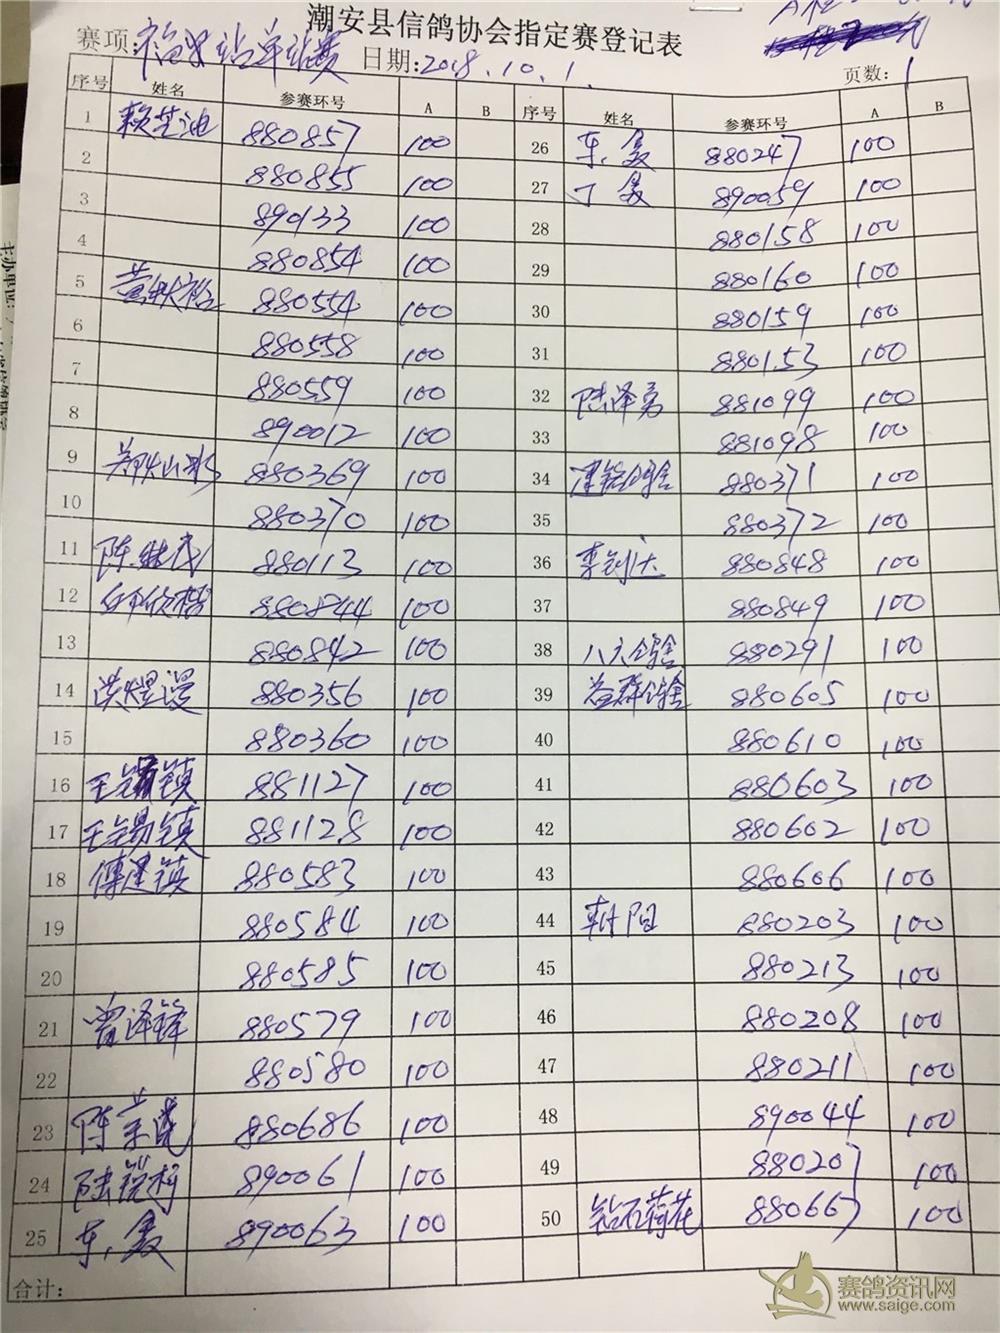 潮安县信鸽协会指定赛登记表
赛项: 站单站赛 日期:2018.10.1. 页数: 1
序号 姓名 参赛环号 A B 序号 姓名 参赛环号 A B
1 赖芝池 880857 100 26 东、 880247 100
2 880855 100 27 丁 890059 100
3 890133 100 28 880158 100
4 880854 100 29 880160 100
5 黄秋裕 880554 100 30 880159 100
6 880558 100 31 880153 100
7 880559 100 32 陆泽勇 881099 100
8 890012 100 33 881098 100
9 山水 880369 100 34 鸽舍 880371 100
10 880370 100 35 880372 100
11 陈继茂 880113 100 36 李钊达 880848 100
12 880844 100 37 880849 100
13 880842 100 38 八六鸽舍 880291 100
14 洪煜漫 880356 100 39 益群鸽舍 880605 100
15 880360 100 40 880610 100
16 王锡镇 881127 100 41 880603 100
17 王锡镇 881128 100 42 880602 100
18 傅建镇 880583 100 43 880606 100
19 880584 100 44 朝阳 880203 100
20 880585 100 45 880213 100
21 曾泽锋 880579 100 46 880208 100
22 880580 100 47 880211 100
23 陈 880686 100 48 890044 100
24 陆锐柯 890061 100 49 880207 100
25 东、 890063 100 50 钻石荷花 880667 100
合计:
赛鸽资讯网
www.saige.com